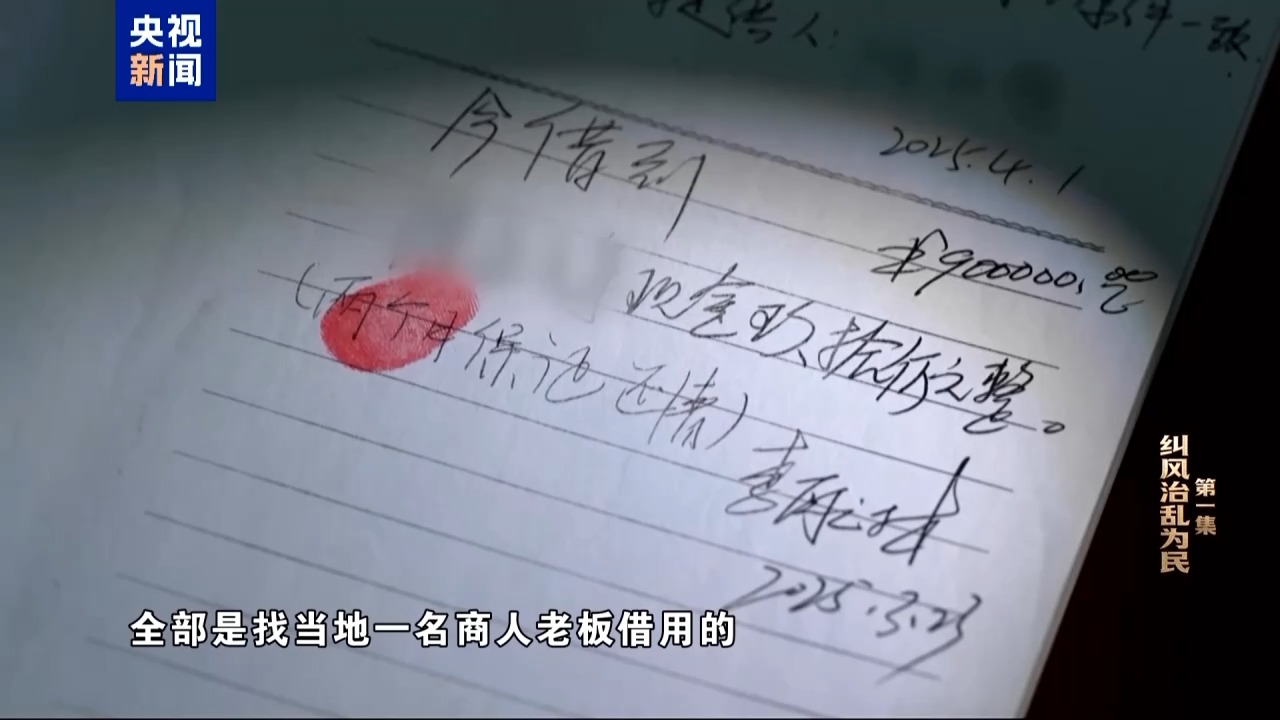 央视
新闻
提供人：
件一致.
2025.4.1
今借到
¥900000.00
现金玖拾万元整。
(两个月保证还清)
2025.3.23
全部是找当地一名商人老板借用的
纠风治乱为民
第一集